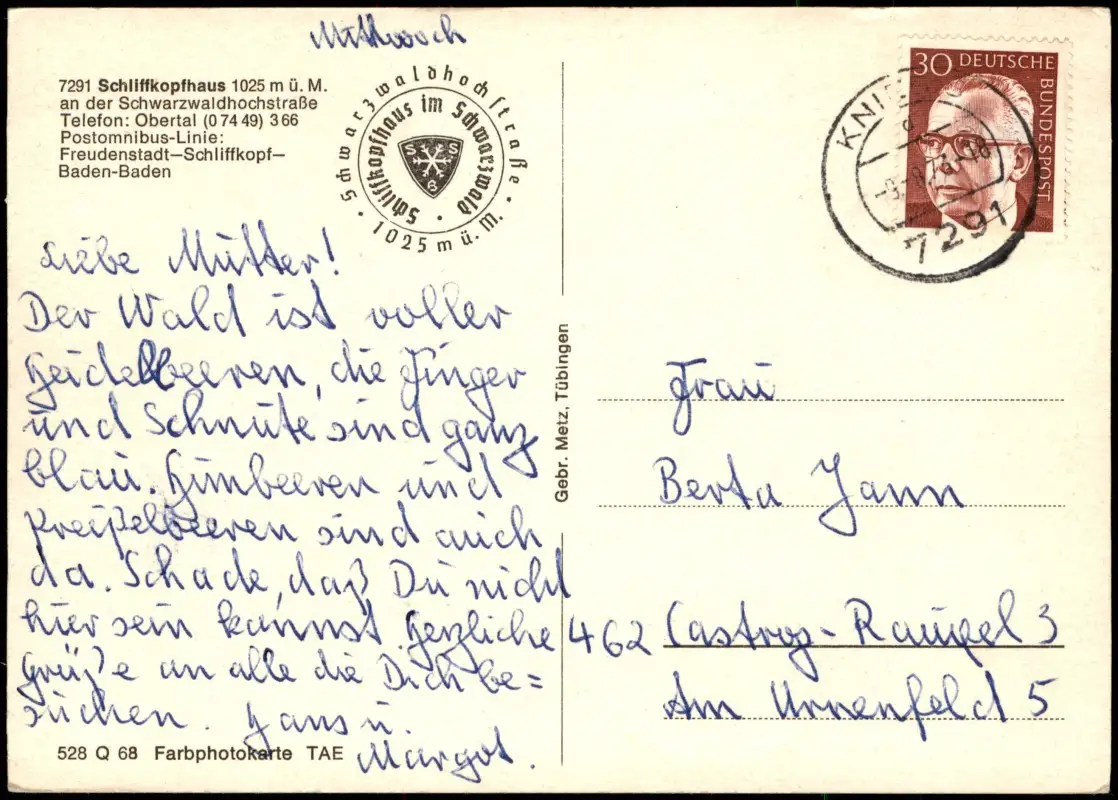 Mittwoch
7291 Schliffkopfhaus 1025 m ü. M.
an der Schwarzwaldhochstraße
Telefon: Obertal (0 74 49) 3 66
Postomnibus-Linie:
Freudenstadt—Schliffkopf—
Baden-Baden
Schwarzwaldhochstraße · 1025 m ü. M. ·
Schliffkopfhaus im Schwarzwald ·
S S
8
30 DEUTSCHE
BUNDESPOST
7291
Liebe Mutter!
Der Wald ist voller
Heidelbeeren, die Finger
und Schnute sind ganz
blau. Himbeeren und
Preißelbeeren sind auch
da. Schade, daß Du nicht
hier sein kannst. Herzliche
Grüße an alle die Dich be=
suchen. Hans u.
Margot.
Gebr. Metz, Tübingen
Frau
Berta Jann
462 Castrop-Rauxel 3
Am Urnenfeld 5
528 Q 68 Farbphotokarte TAE